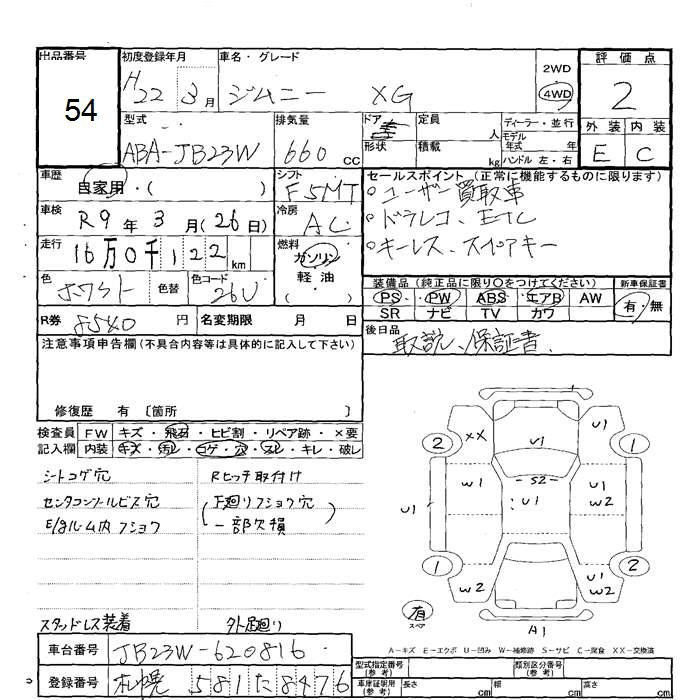 出品番号 54
初度登録年月 H22 3月
車名・グレード ジムニー XG
2WD
4WD
評価点 2
外装 内装
E C
型式 ABA-JB23W
排気量 660 cc
ドア 形状
定員 人
積載 kg
ディーラー・並行
モデル年式 年
ハンドル 左・右
車歴 自家用・( )
シフト F5MT
車検 R9年3月(26日)
冷房 AC
走行 16万0千122km
燃料 ガソリン
軽油
( )
色 ホワイト 色替
色コード 26U
R券 8540円
名変期限 月 日
セールスポイント (正常に機能するものに限ります)
○ユーザー買取車
○ドラレコ、ETC
○キーレス、スペアキー
装備品 (純正品に限り○をつけてください)
新車保証書
PS PW ABS エアB AW
有・無
SR ナビ TV カワ
後日品 取説、保証書
注意事項申告欄(不具合内容等は具体的に記入して下さい)
修復歴 有 〔箇所 〕
検査員 FW キズ・飛石・ヒビ割・リペア跡・×要
記入欄 内装 キズ・汚レ・コゲ・穴・スレ・キレ・破レ
シートコゲ穴 Rヒッチ取付け
センタコンソールビス穴 (下廻りフショク穴
E/gルーム内フショク 一部欠損)
スタッドレス装着 外足廻り
車台番号 JB23W-620816
登録番号 札幌 581た8476
XX U1 U1
2 1
W1 S2 U1
U1 U1 W2
1 2
W2 U1 W2
有 スペア
A1
A-キズ E-エクボ U-凹み W-補修跡 S-サビ C-腐食 XX-交換済
型式指定番号(参考)
類別区分番号(参考)
車庫証明用(参考) 長さ cm 幅 cm 高さ cm